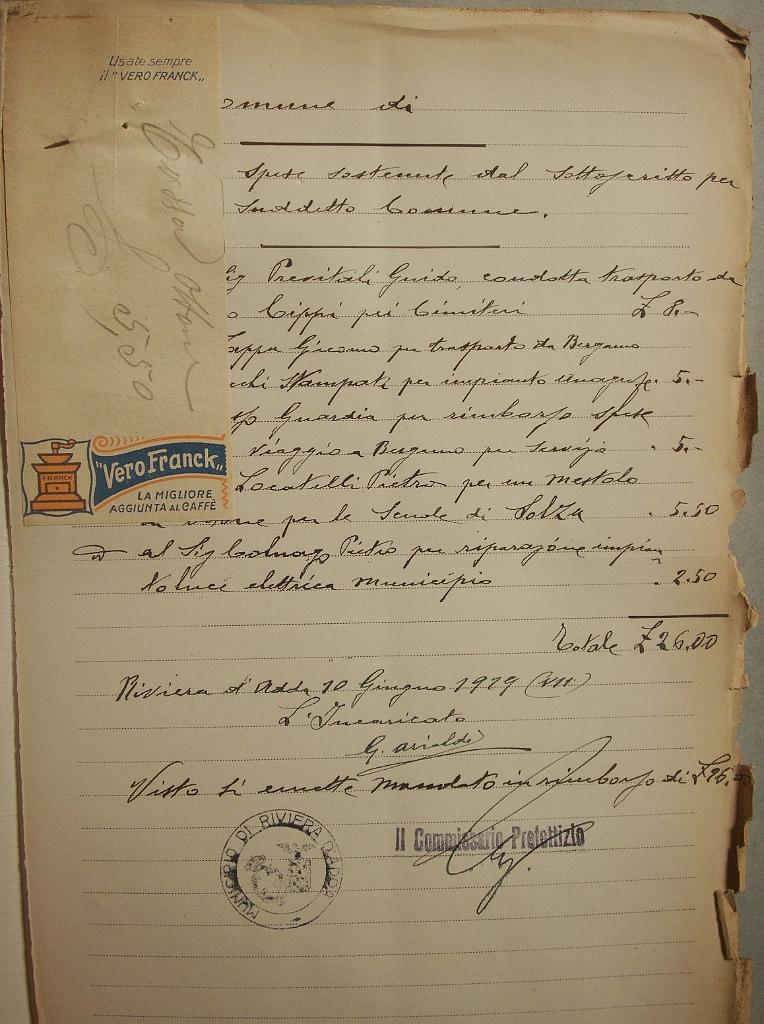 Usate sempre
il "VERO FRANCK„
5,50
FRANCK
"Vero Franck„
LA MIGLIORE
AGGIUNTA AL CAFFÈ
omune di
Spese sostenute dal sottoscritto per
suddetto Comune.
ig Previtali Guido, condotta trasporto da
o Cippi pei Cimiteri £ 8.-
appa Giacomo per trasporto da Bergamo
chi Stampati per impianto anagrafe. 5.-
Guardia per rimborso spese
viaggio a Bergamo per servizio . 5.-
Locatelli Pietro per un mestolo
in per le Scuole di Solza . 5.50
al Sig Pietro per riparazione impian
to luce elettrica municipio . 2.50
Totale £ 26.00
Riviera d'Adda 10 Giugno 1929 (VII)
L'Incaricato
G.
Visto si emette mandato in rimborso di £ 26.0
MUNICIPIO DI RIVIERA D'ADDA
Il Commissario Prefettizio